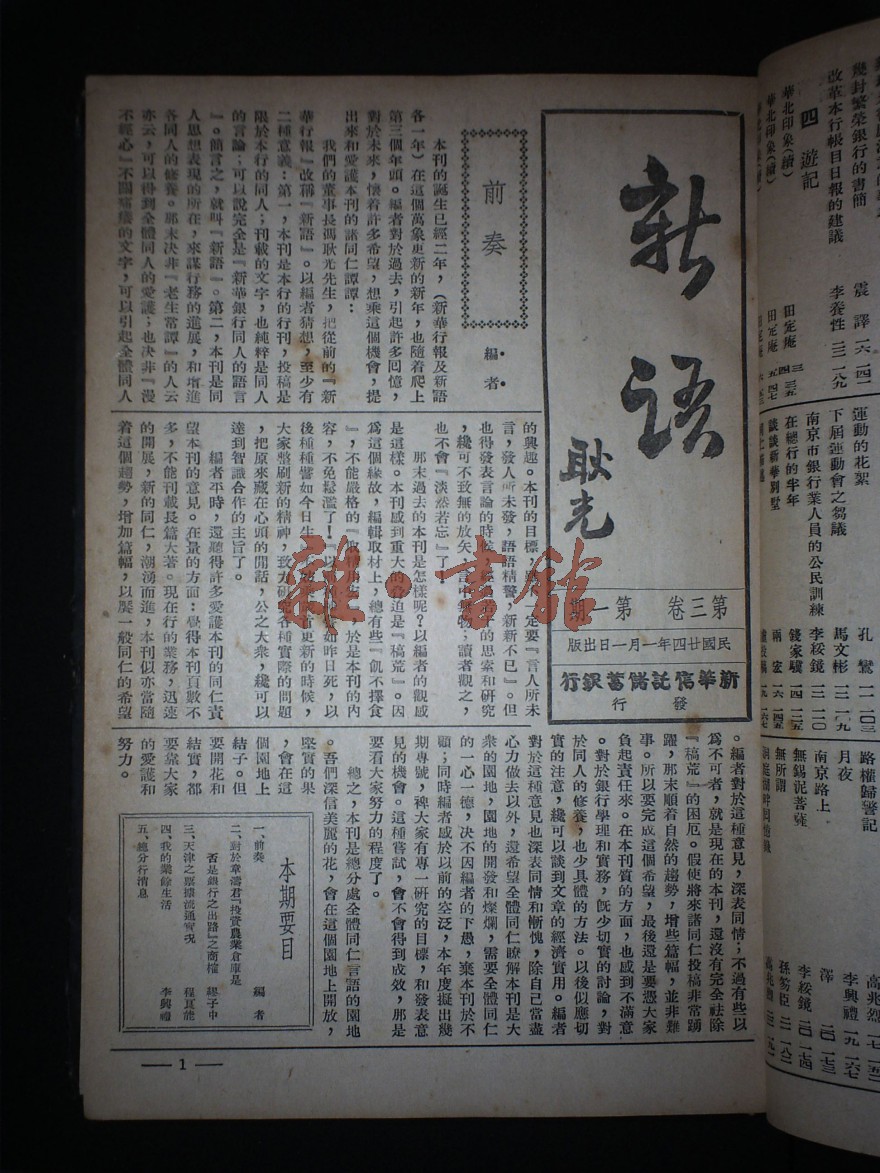 新語
耿光
第三卷 第一期
民國廿四年一月一日出版
新華信託儲蓄銀行
發行
前奏
編者
本刊的誕生已經二年，（新華行報及新語
各一年）在這個萬象更新的新年，也隨着爬上
第三個年頭。編者對於過去，引起許多回憶，
對於未來，懷着許多希望，想乘這個機會，提
出來和愛護本刊的諸同仁譚譚：
我們的董事長馮耿光先生，把從前的『新
華行報』改稱『新語』。以編者猜想，至少有
二種意義：第一，本刊是本行的行刊，投稿是
限於本行的同人；刊載的文字，也純粹是同人
的言論；可以說完全是『新華銀行同人的語言
』。簡言之，就叫『新語』。第二，本刊是同
人思想表現的所在，來謀行務的進展，和增進
各同人的修養。那末決非『老生常譚』的人云
亦云，可以得到全體同人的愛護；也決非『漫
不經心』不關痛癢的文字，可以引起全體同人
的興趣。本刊的目標，一定要『言人所未
言，發人所未發，語語精警，新新不已』。但
也得發表言論的時候，的思索和研究
，纔可不致無的放矢，言中無物；讀者觀之，
也不會『淡然若忘』了。
那末過去的本刊是怎樣呢？以編者的觀感
是這樣。本刊感到重大的迫是『稿荒』。因
爲這個緣故，編輯取材上，總有些『飢不擇食
』，不能嚴格的『取精』於是本刊的內
容，不免鬆濫了！『以如昨日死，以
後種種譬如今日生』更新的時候，
大家整刷新的精神，致力研究各種實際的問題
，把原來藏在心頭的閒話，公之大衆，纔可以
達到智識合作的主旨了。
編者平時，還聽得許多愛護本刊的同仁責
望本刊的意見。在量的方面：覺得本刊頁數不
多，不能刊載長篇大著。現在行的業務，迅速
的開展，新的同仁，潮湧而進，本刊似亦當隨
着這個趨勢，增加篇幅，以饜一般同仁的希望
。編者對於這種意見，深表同情；不過有些以
爲不可者，就是現在的本刊，還沒有完全袪除
『稿荒』的困厄。假使將來諸同仁投稿非常踴
躍，那末順着自然的趨勢，增些篇幅，並非難
事。所以要完成這個希望，最後還是要憑大家
負起責任來。在本刊質的方面，也感到不滿意
。對於銀行學理和實務，旣少切實的討論，對
於同人的修養，也少具體的方法。以後似應切
實的注意，纔可以談到文章的經濟實用。編者
對於這種意見也深表同情和慚愧，除自己當盡
心力做去以外，還希望全體同仁瞭解本刊是大
衆的園地，園地的開發和燦爛，需要全體同仁
的一心一德，決不因編者的下愚，棄本刊於不
顧；同時編者感於以前的空泛，本年度擬出幾
期專號，稗大家有專一研究的目標，和發表意
見的機會。這種嘗試，會不會得到成效，那是
要看大家努力的程度了。
總之，本刊是總分處全體同仁言語的園地
。吾們深信美麗的花，會在這個園地上開放，
堅實的果
，會在這
個園地上
結子。但
要開花和
結實，都
要靠大家
的愛護和
努力。
本期要目
一、前奏 編者
二、對於章濤君『投資農業倉庫是
否是銀行之出路』之商榷 繆子中
三、天津之票據流通實况 程夏能
四、我的業餘生活 李興禮
五、總分行消息
— 1 —
幾封繁榮銀行的書簡 震譯
改革本行帳目日報的建議 李養性
四 遊記
華北印象(續) 田定庵
華北印象(續) 田定庵
運動的花絮 孔鸞
下屆運動會之芻議 馬文彬
南京市銀行業人員的公民訓練 李綏鏡
在總行的半年 錢家驥
談談新華別墅 兩宏
路權歸警記 高兆烈
月夜 李興禮
南京路上 澤
無錫泥菩薩 李綏鏡
無所謂 孫芴臣
雜·書館